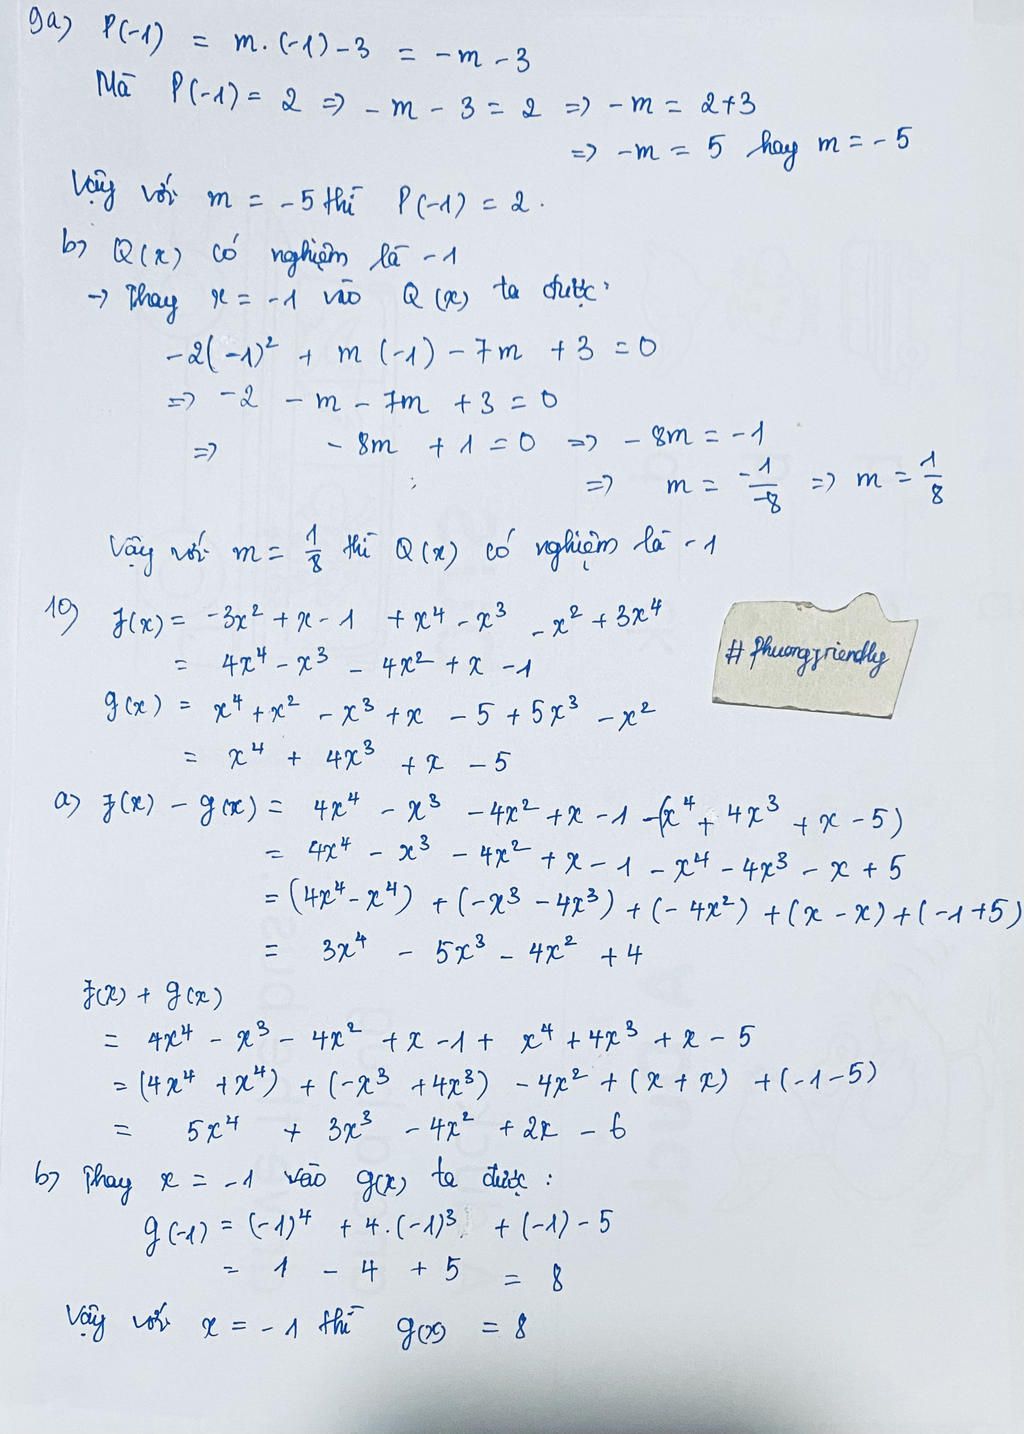 9a) P(-1) = m.(-1)-3 = -m-3
Mà P(-1) = 2 => -m - 3 = 2 => -m = 2+3
=> -m = 5 hay m = -5
Vậy với m = -5 thì P(-1) = 2.
b) Q(x) có nghiệm là -1
-> Thay x = -1 vào Q(x) ta được:
-2(-1)² + m(-1) - 7m + 3 = 0
=> -2 - m - 7m + 3 = 0
=> - 8m + 1 = 0 => - 8m = -1
=> m = -1/-8 => m = 1/8
Vậy với m = 1/8 thì Q(x) có nghiệm là -1
10) f(x) = -3x² + x - 1 + x⁴ - x³ - x² + 3x⁴
= 4x⁴ - x³ - 4x² + x - 1
#Phuongfriendly
g(x) = x⁴ + x² - x³ + x - 5 + 5x³ - x²
= x⁴ + 4x³ + x - 5
a) f(x) - g(x) = 4x⁴ - x³ - 4x² + x - 1 - (x⁴ + 4x³ + x - 5)
= 4x⁴ - x³ - 4x² + x - 1 - x⁴ - 4x³ - x + 5
= (4x⁴ - x⁴) + (-x³ - 4x³) + (-4x²) + (x - x) + (-1+5)
= 3x⁴ - 5x³ - 4x² + 4
f(x) + g(x)
= 4x⁴ - x³ - 4x² + x - 1 + x⁴ + 4x³ + x - 5
= (4x⁴ + x⁴) + (-x³ + 4x³) - 4x² + (x + x) + (-1-5)
= 5x⁴ + 3x³ - 4x² + 2x - 6
b) Thay x = -1 vào g(x) ta được:
g(-1) = (-1)⁴ + 4.(-1)³ + (-1) - 5
= 1 - 4 + 5 = 8
Vậy với x = -1 thì g(x) = 8